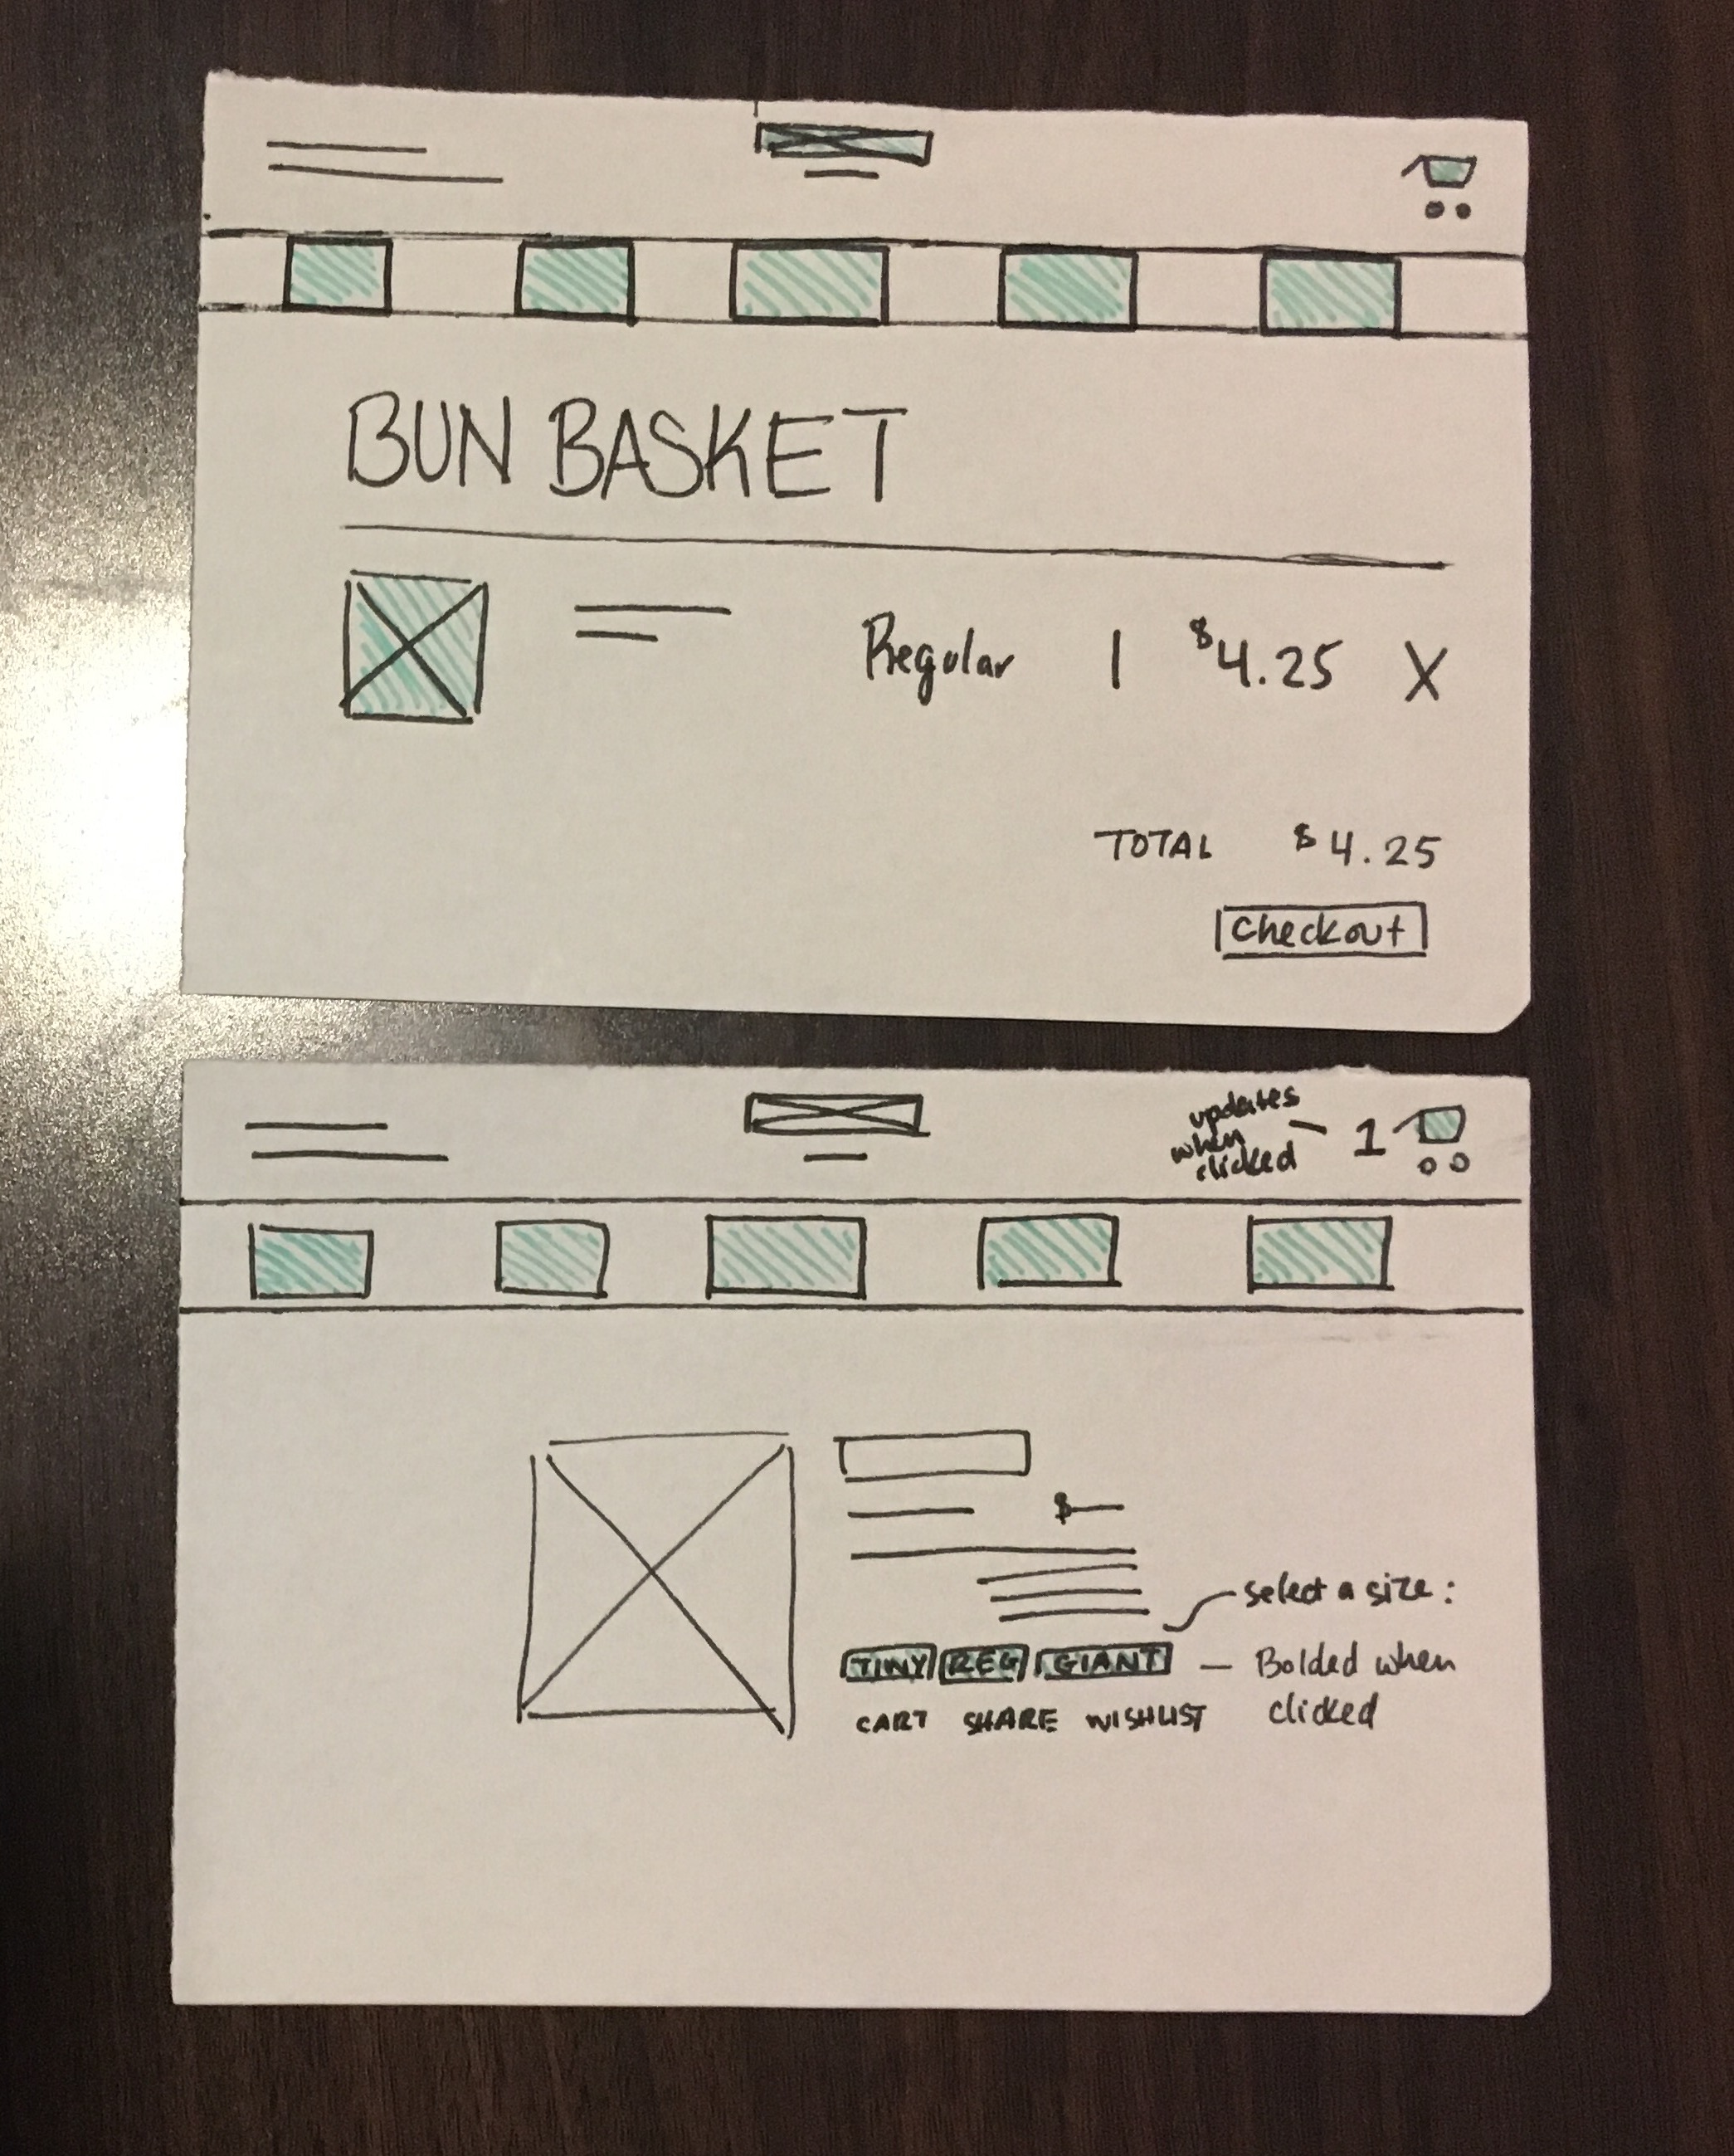 BUN BASKET
Regular 1 $4.25 X
TOTAL $4.25
Checkout
updates
when
clicked
1
$
select a size:
TINY REG GIANT — Bolded when
clicked
CART SHARE WISHLIST